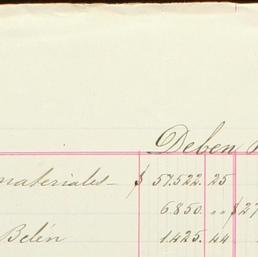 Deben
materiales — $ 57.522. 25
6.850. „ $ 27
Belén 1.425. 44